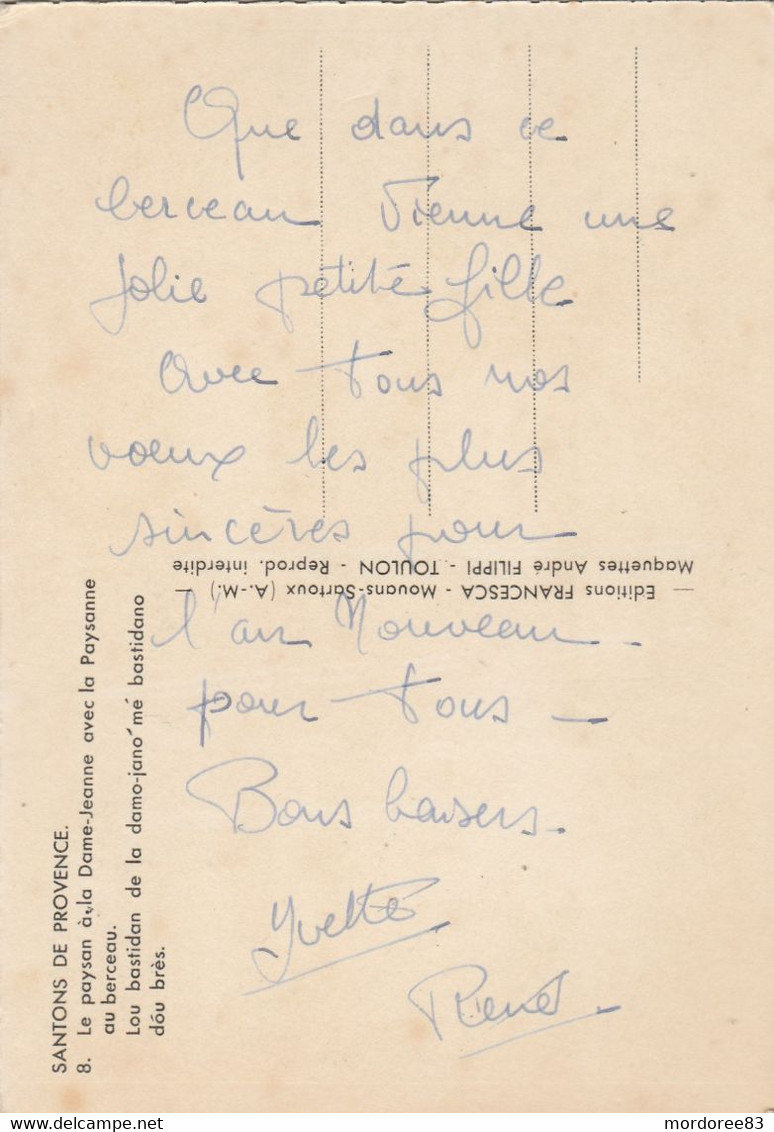 Que dans ce
berceau vienne une
jolie petite fille
Avec tous nos
voeux les plus
sincères pour
l'an Nouveau -
pour tous -
Bons baisers.
Yvette
René
SANTONS DE PROVENCE.
8. Le paysan à la Dame-Jeanne avec la Paysanne
au berceau.
Lou bastidan de la damo-jano' mé bastidano
dóu brès.
— Editions FRANCESCA - Mouans-Sartoux (A.-M.) —
Maquettes André FILIPPI - TOULON - Reprod. interdite
delcampe.net
mordoree83